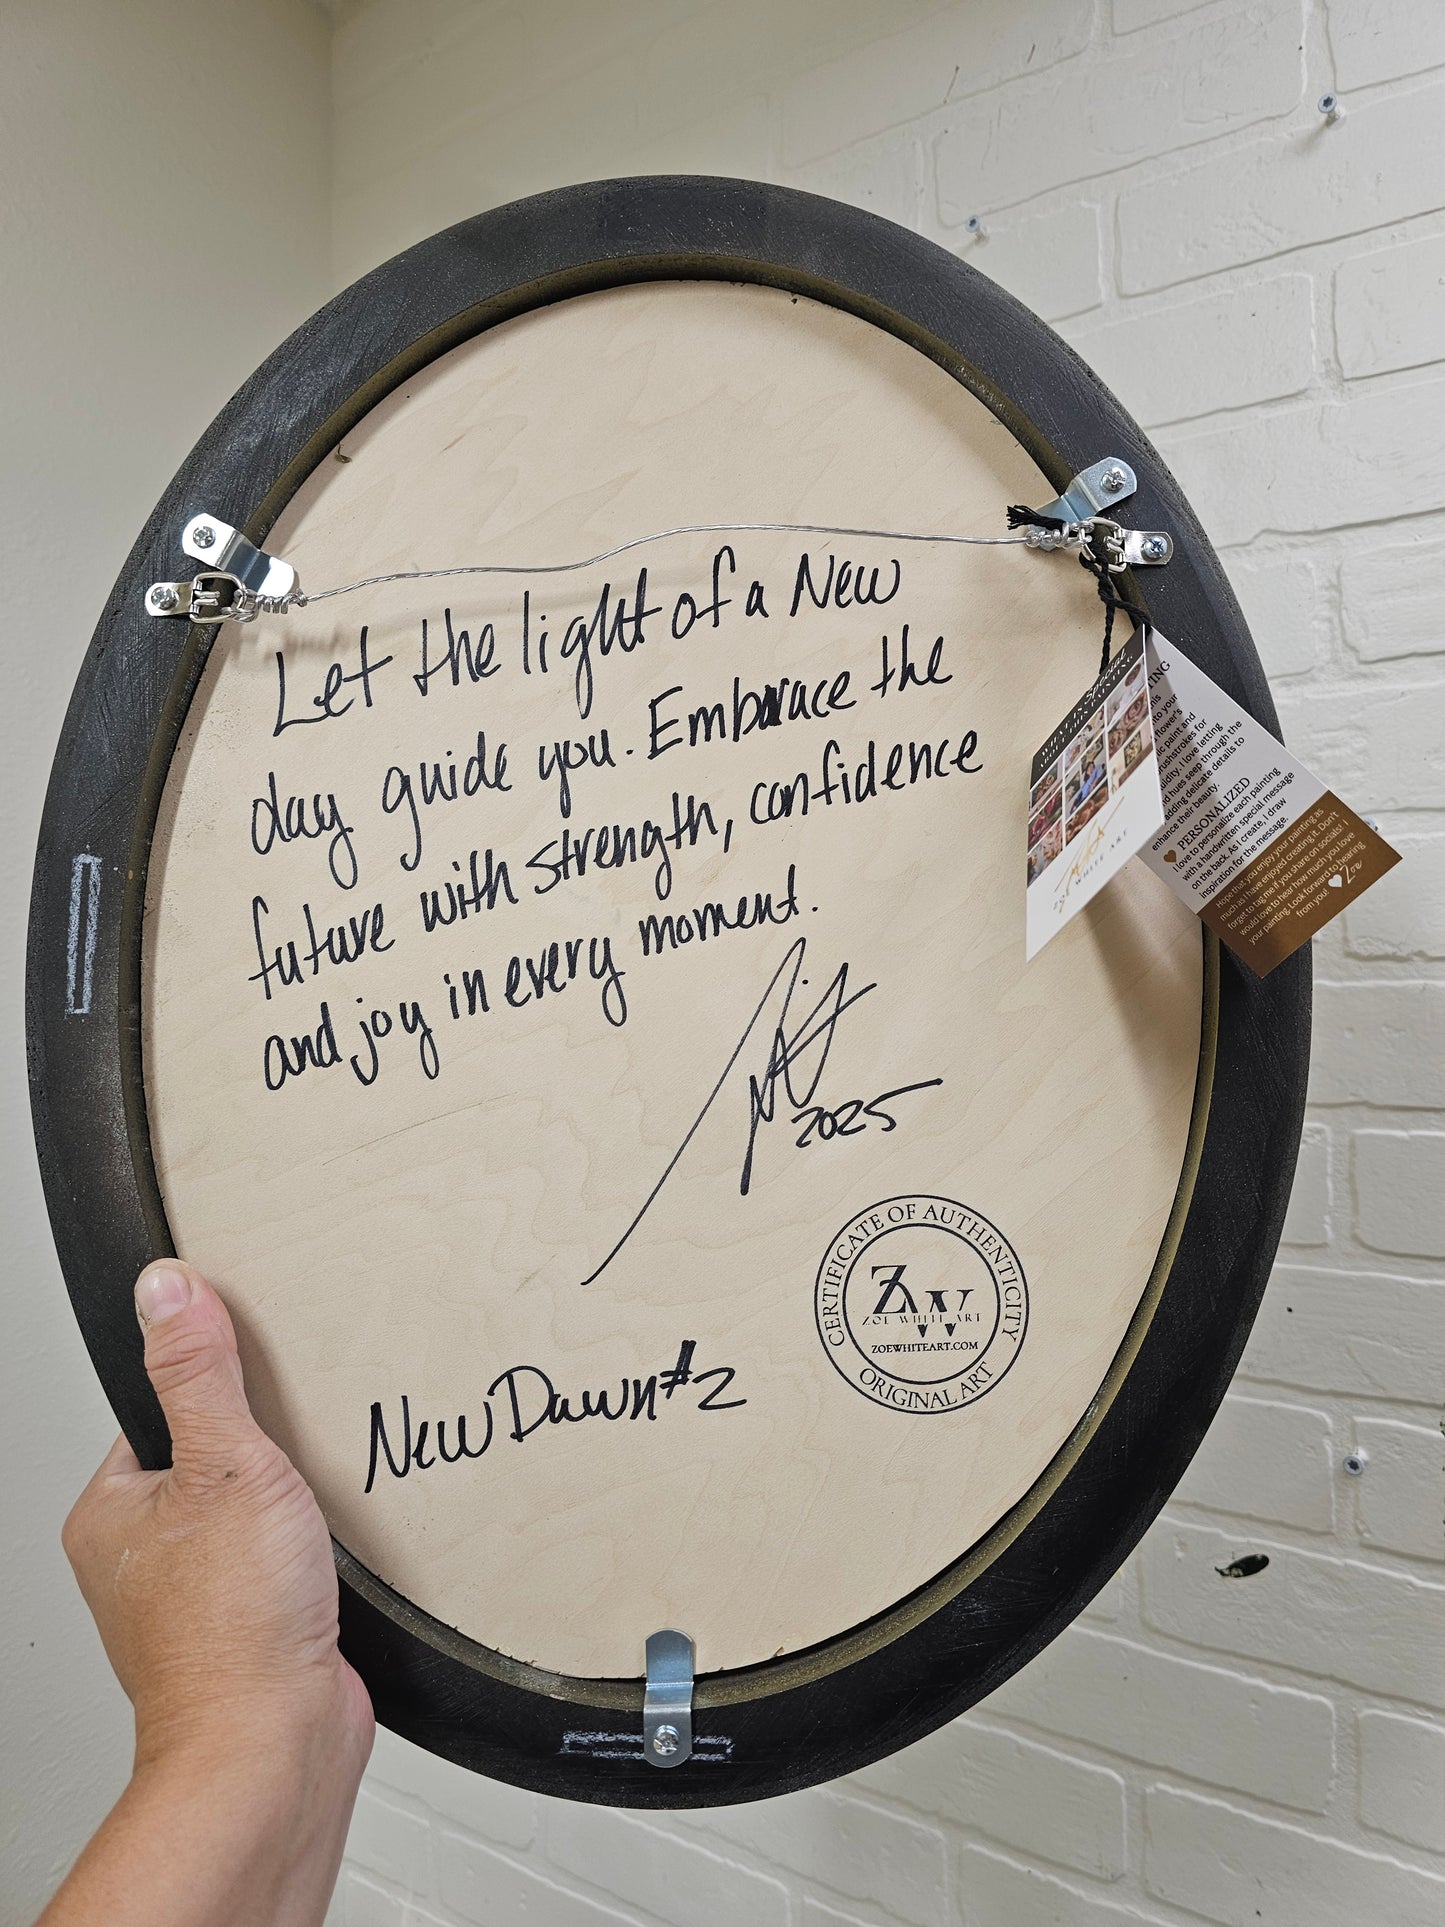 Let the light of a New
day guide you. Embrace the
future with strength, confidence
and joy in every moment.
2025
New Dawn #2
CERTIFICATE OF AUTHENTICITY
ZW
ZOE WHITE ART
ZOEWHITEART.COM
ORIGINAL ART
ZOE WHITE ART
enhance their beauty.
PERSONALIZED
I love to personalize each painting
with a handwritten special message
on the back. As I create, I draw
inspiration for the message.
Hope that you enjoy your painting as
much as I have enjoyed creating it. Don't
forget to tag me if you share on socials! I
would love to hear how much you love
your painting. Look forward to hearing
from you! Zoe